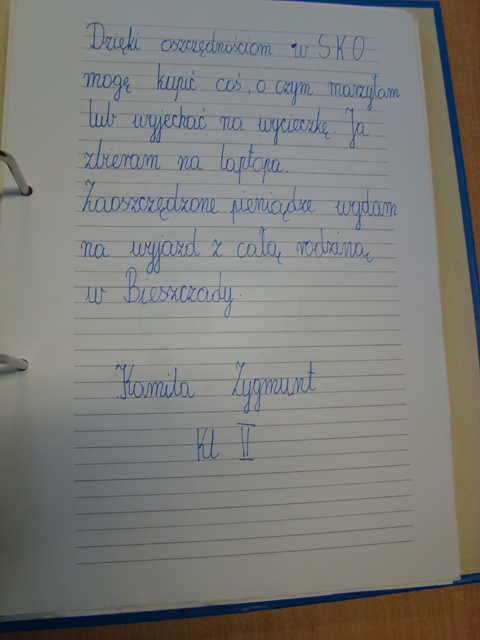 Dzięki oszczędnościom w SKO
mogę kupić coś, o czym marzyłam
lub wyjechać na wycieczkę. Ja
zbieram na laptopa.
Zaoszczędzone pieniądze wydam
na wyjazd z całą rodziną
w Bieszczady.
Kamila Zygmunt
Kl II